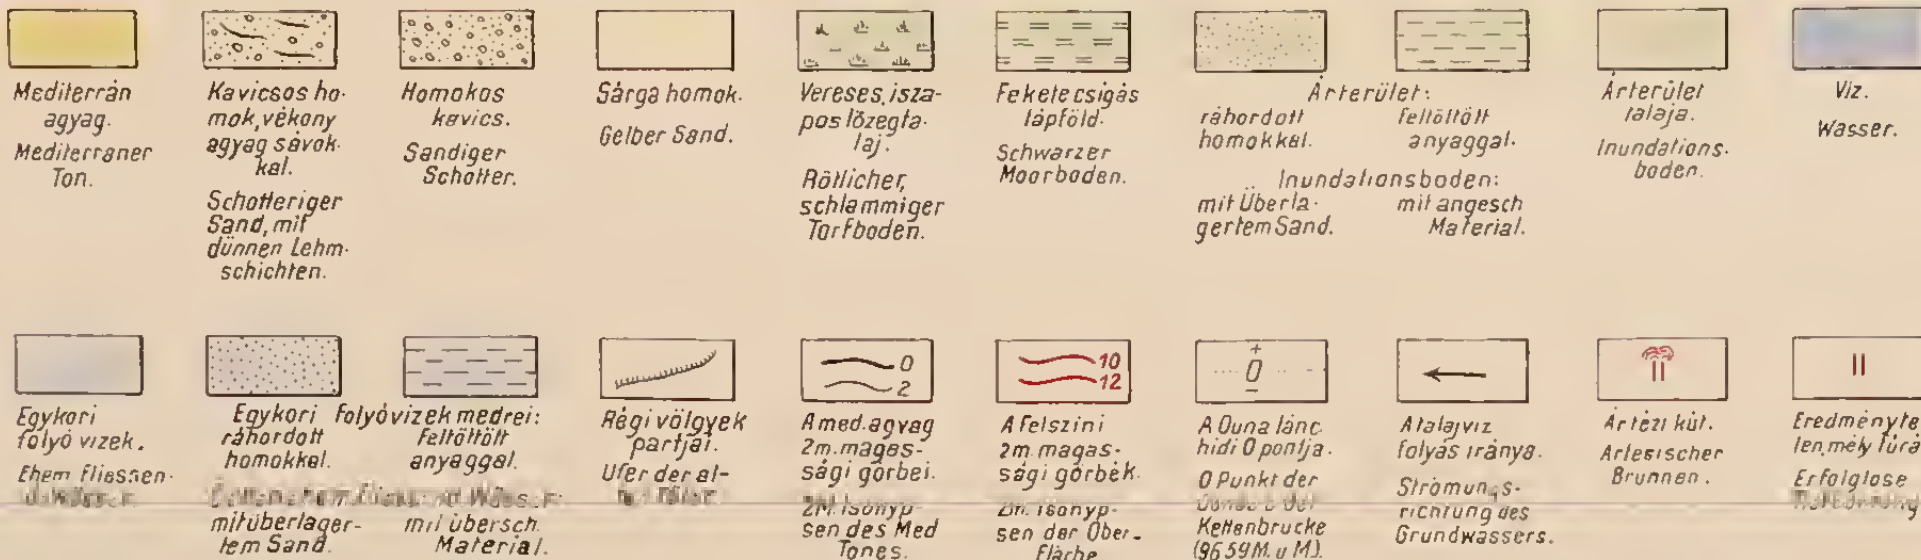 Mediterrán
agyag.
Mediterraner
Ton.
Kavicsos ho-
mok, vékony
agyag sávok-
kal.
Schotteriger
Sand, mit
dünnen Lehm-
schichten.
Homokos
kavics.
Sandiger
Schotter.
Sárga homok.
Gelber Sand.
Vereses, isza-
pos tőzegta-
laj.
Rötlicher,
schlammiger
Torfboden.
Fekete csigás
lápföld.
Schwarzer
Moorboden.
Árterület:
ráhordott
homokkal.
feltöltött
anyaggal.
Inundationsboden:
mit Überla-
gertem Sand.
mit angesch
Material.
Árterület
talaja.
Inundations-
boden.
Víz.
Wasser.
Egykori
folyó vizek.
Ehem fliessen-
Egykori folyóvizek medrei:
ráhordott
homokkal.
feltöltött
anyaggal.
mit überlager-
tem Sand.
mit übersch.
Material.
Régi völgyek
partjai.
Ufer der al-
0
2
A med. agyag
2m. magas-
sági görbéi.
2M. Isohyp-
sen des Med
Tones.
10
12
A felszini
2m. magas-
sági görbék.
2m. isohyp-
sen der Ober-
fläche
+
0
–
A Duna lánc
hidi 0 pontja.
0 Punkt der
Kettenbrücke
(96 59 M. u M).
A talajvíz
folyás iránya.
Strömungs-
richtung des
Grundwassers.
Ártézi kút.
Artesischer
Brunnen.
Eredményte
len, mély fúrá
Erfolglose